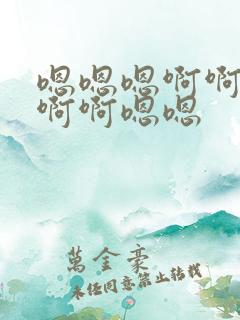 嗯嗯嗯啊啊
啊啊嗯嗯
萬金豪
未经同意禁止转载